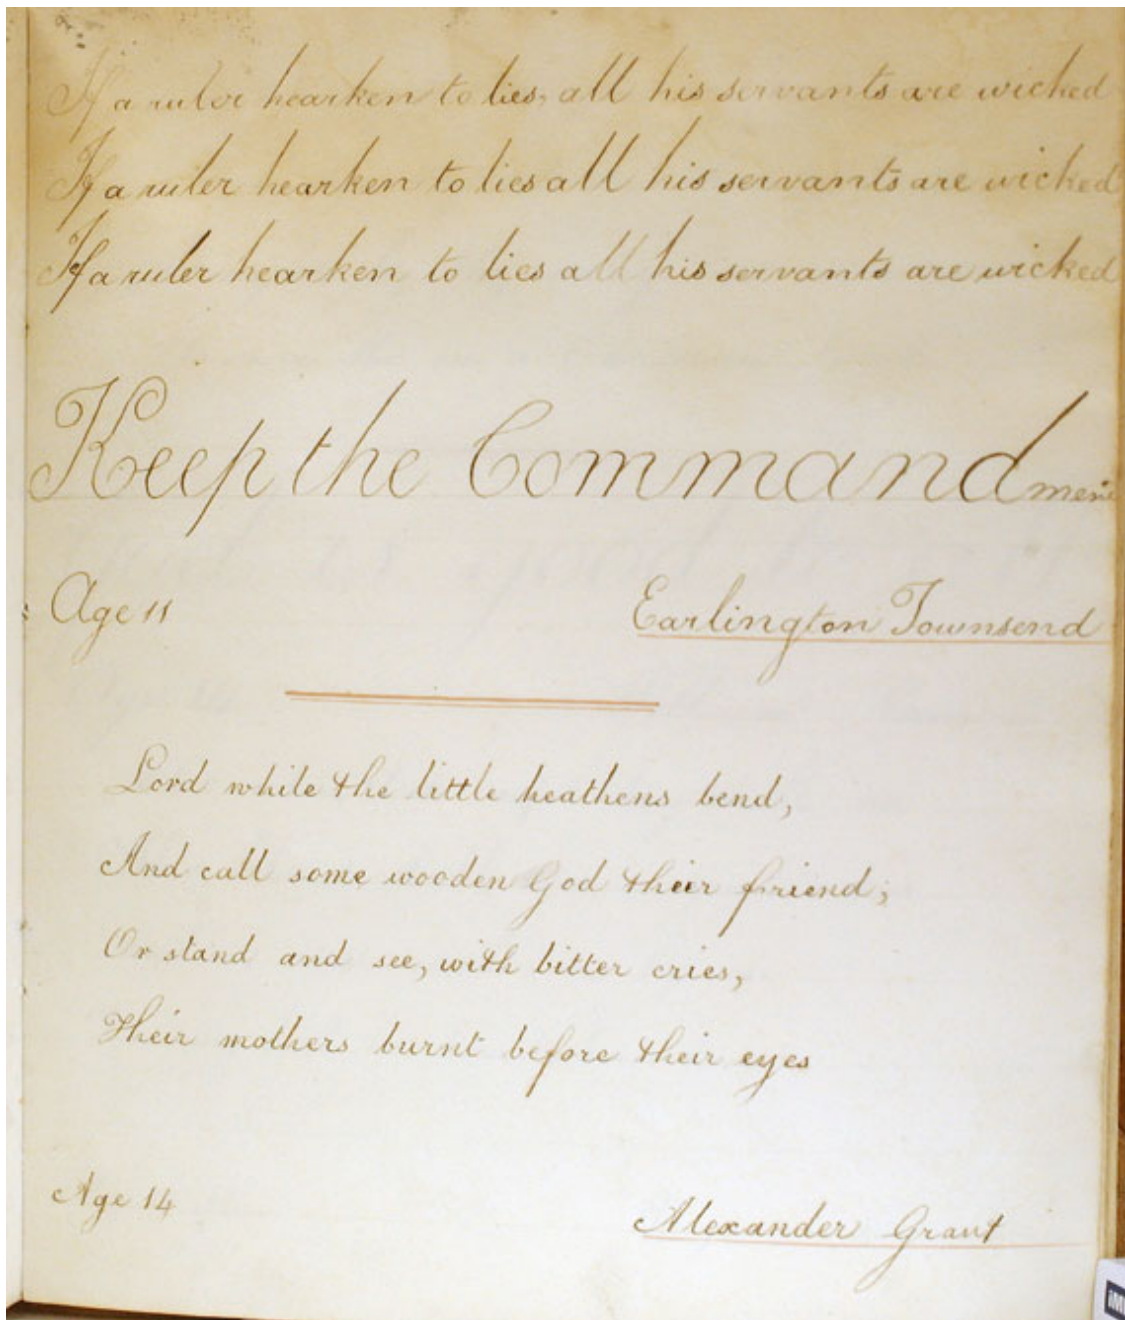 If a ruler hearken to lies, all his servants are wicked
If a ruler hearken to lies all his servants are wicked
If a ruler hearken to lies all his servants are wicked
Keep the Commandment
Age 11
Earlington Townsend
Lord while the little heathens bend,
And call some wooden God their friend;
Or stand and see, with bitter cries,
Their mothers burnt before their eyes
Age 14
Alexander Grant